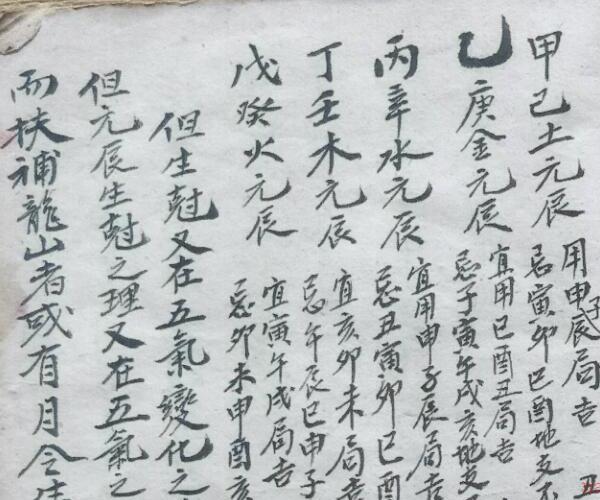 甲己土元辰
用申子辰局吉
忌寅卯巳酉地支不
乙庚金元辰
宜用巳酉丑局吉
忌子寅午戌亥地支
丙辛水元辰
宜用申子辰局吉
忌丑寅卯巳酉
丁壬木元辰
宜亥卯未局吉
忌午辰巳申子
戊癸火元辰
宜寅午戌局吉
忌卯未申酉亥
但生尅又在五氣變化之
但元辰生尅之理又在五氣之
而扶補龍山者或有月令生